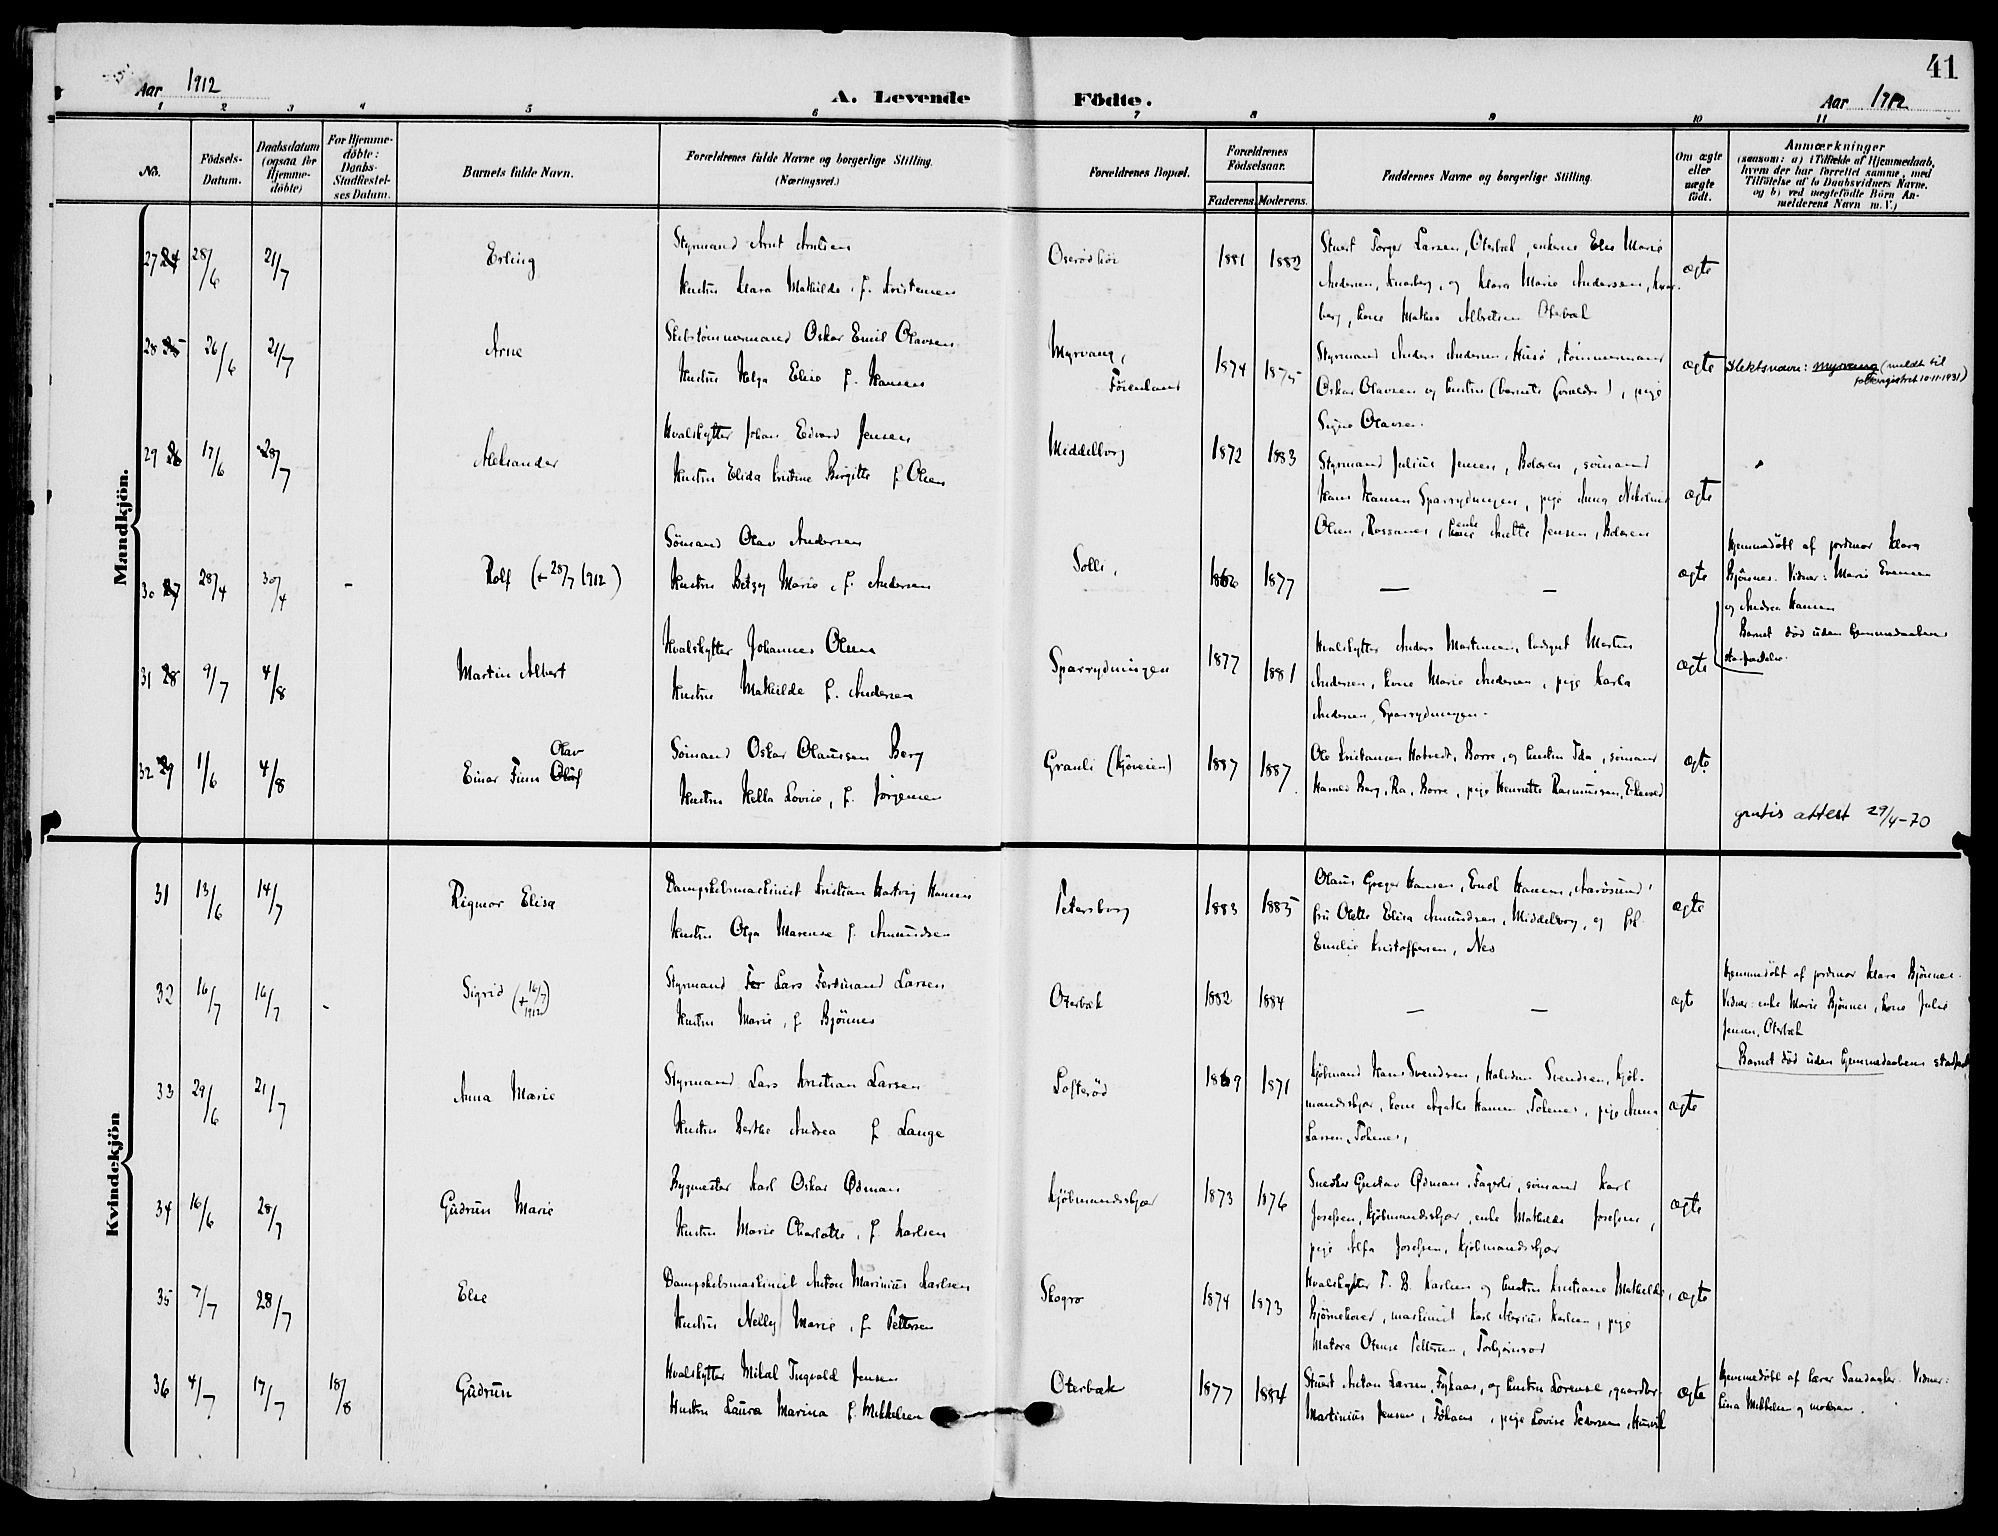 41
Aar 1912
A. Levende
Födte.
Aar 1912
1 2 3 4 5 6 7 8 9 10 11
No.
Födsels-Datum.
Daabsdatum (ogsaa for Hjemme-döbte)
For Hjemme-döbte: Daabs-Stadfæstel-ses Datum.
Barnets fulde Navn.
Forældrenes fulde Navne og borgerlige Stilling.
(Næringsvei.)
Forældrenes Bopæl.
Forældrenes Födselsaar.
Faderens. Moderens.
Faddernes Navne og borgerlige Stilling.
Om ægte eller uægte födt.
Anmærkninger
(saasom: a) i Tilfælde af Hjemmedaab,
hvem der har forrettet samme, med
Tilföielse af to Daabsvidners Navne,
og b) ved uægtefödte Börn An-
melderens Navn m. V.)
Mandkjön.
27 24 28/6 21/7 Erling
Styrmand Arnt Arntsen
Hustru Klara Mathilde, f. Kristensen
Oserödhöi 1881 1882
Stuert Torger Larsen, Oterbæk, enkerne Else Marie
Andersen, Knarberg, og Klara Marie Andersen, Knar-
berg, kone Mathea Albretsen Oterbæk
ægte
28 25 26/6 21/7 Arne
Skibstömmermand Oskar Emil Olavsen
Hustru Helga Elise f. Hansen
Myrvang, Föienland 1874 1875
Styrmand Anders Andersen, Husö, tömmermand
Oskar Olavsen og hustru (barnets forældre), pige
Signe Olavsen.
ægte
Slektsnavn: Myrvang (meldt til
folkeregistret 10.11.1931)
29 26 17/6 28/7 Aleksander
Hvalskytter Johan Edvard Jensen
Hustru Elida Kristine Birgitte f. Olsen
Middelborg 1872 1883
Styrmand Julius Jensen, Bolæren, sömand
Hans Hansen Sparrydningen, pige Anna Nikoline
Olsen, Rossanes, enke Anette Jensen, Bolæren
ægte
30 27 28/4 30/4 - Rolf (+ 28/7 1912)
Sömand Olav Andersen
Hustru Betzy Marie, f. Andersen
Solli, 1877
— —
ægte
Hjemmedöbt af jordmor Klara
Bjönnes. Vidner: Marie Evensen
og Andrea Hansen
Barnet död uden hjemmedaabens
stadfæstelse.
31 28 9/7 4/8 Martin Albert
Hvalskytter Johannes Olsen
Hustru Mathilde f. Andersen
Sparrydningen 1877 1881
Hvalskytter Anders Martinsen, Martin
Andersen, kone Marie Andersen, pige Karla
Andersen, Sparrydningen.
ægte
32 29 1/6 4/8 Einar Finn Oluf Olav
Sömand Oskar Olaussen Berg
Hustru Hella Lovise, f. Jörgensen
Granli (Kjöveien) 1887 1887
Ole Kristiansen Hotvedt, Borre, og hustru Ida, sömand
Harald Berg, Ra, Borre, pige Henriette Rasmussen, Ekevold
ægte.
gratis attest 29/4-70
Kvindekjön
31 13/6 14/7 Rigmor Elisa
Dampskibsmaskinist Kristian Hartvig Hansen
Hustru Olga Marense f. Amundsen
Petersborg 1883 1885
Olaus Gregar Hansen, Emil Hansen, Aarösund,
fru Olette Elisa Amundsen, Middelborg, og frk.
Emilie Kristoffersen, Nes
ægte
32 16/7 16/7 - Sigrid (+ 16/7 1912)
Styrmand Fer Lars Ferdinand Larsen
Hustru Marie, f. Bjönnes
Oterbæk 1882 1884
— —
ægte
Hjemmedöbt af jordmor Klara Bjönnes.
Vidner: enke Marie Bjönnes, kone Julie
Jensen, Oterbæk
Barnet död uden hjemmedaabens stadfæst.
33 29/6 21/7 Anna Marie
Styrmand Lars Kristian Larsen
Hustru Berthe Andrea f. Lange
Lofteröd 1869 1871
Kjöbmand Hans Svendsen, Halvdan Svendsen, Kjöb-
mandskjær, kone Agathe Hansen Tokenes, pige Anna
Larsen, Tokenes,
ægte
34 16/6 28/7 Gudrun Marie
Bygmester Karl Oskar Ödman
Hustru Marie Charlotte, f. Karlsen
Kjöbmandskjær 1873 1876
Snedker Gustav Ödman, Fagerli, sömand Karl
Josefsen, Kjöbmandskjær, enke Mathilde Josefsen,
pige Alfa Josefsen, Kjöbmandskjær
ægte
35 7/7 28/7 Else
Dampskibsmaskinist Anton Marinius Karlsen
Hustru Nelly Marie, f. Pettersen
Skogro 1874 1873
Hvalskytter T. B. Karlsen og hustru Kristiane Mathilde,
Bjönnehoved, maskinist Karl Alexius Karlsen, pige
Matora Otense Pettersen, Torbjönsröd
ægte
36 4/7 17/7 18/8 Gudrun
Hvalskytter Mikal Ingvald Jensen
Hustru Laura Marina f. Mikkelsen
Oterbæk 1877 1884
Stuert Anton Larsen, og hustru Lorense, gaardbr.
Martinius Jensen, pige Lovise Pedersen, Husvik
ægte
Hjemmedöbt af lærer Sandager. Vidner:
Lina Mikkelsen og moderen.